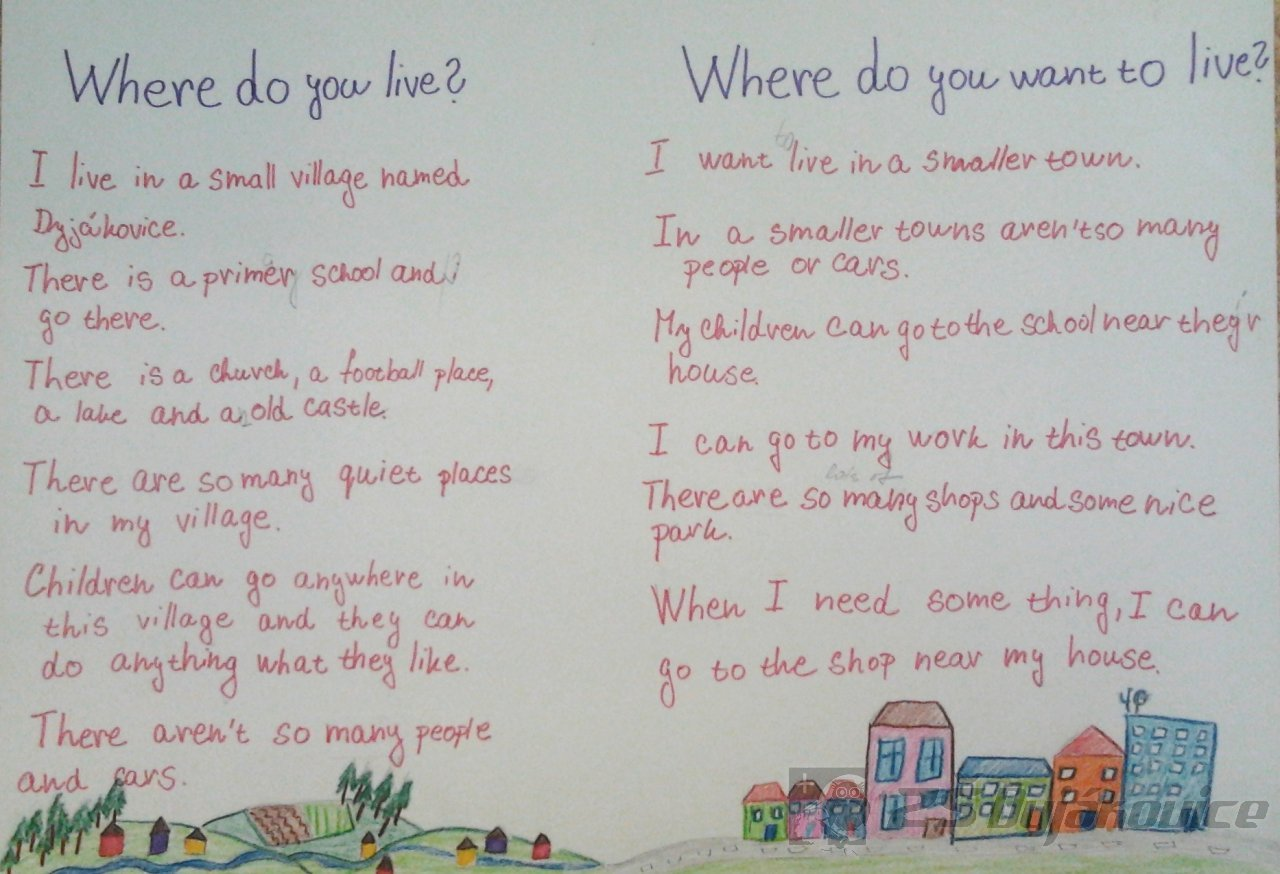 Where do you live?
I live in a small village named
Dyjákovice.
There is a primery school and I
go there.
There is a church, a football place,
a lake and an old castle.
There are so many quiet places
in my village.
Children can go anywhere in
this village and they can
do anything what they like.
There aren't so many people
and cars.
Where do you want to live?
to
I want live in a smaller town.
In a smaller towns aren't so many
people or cars.
My children can go to the school near they'r
house.
I can go to my work in this town.
lots of
There are so many shops and some nice
park.
When I need some thing, I can
go to the shop near my house.
ZŠ Dyjákovice